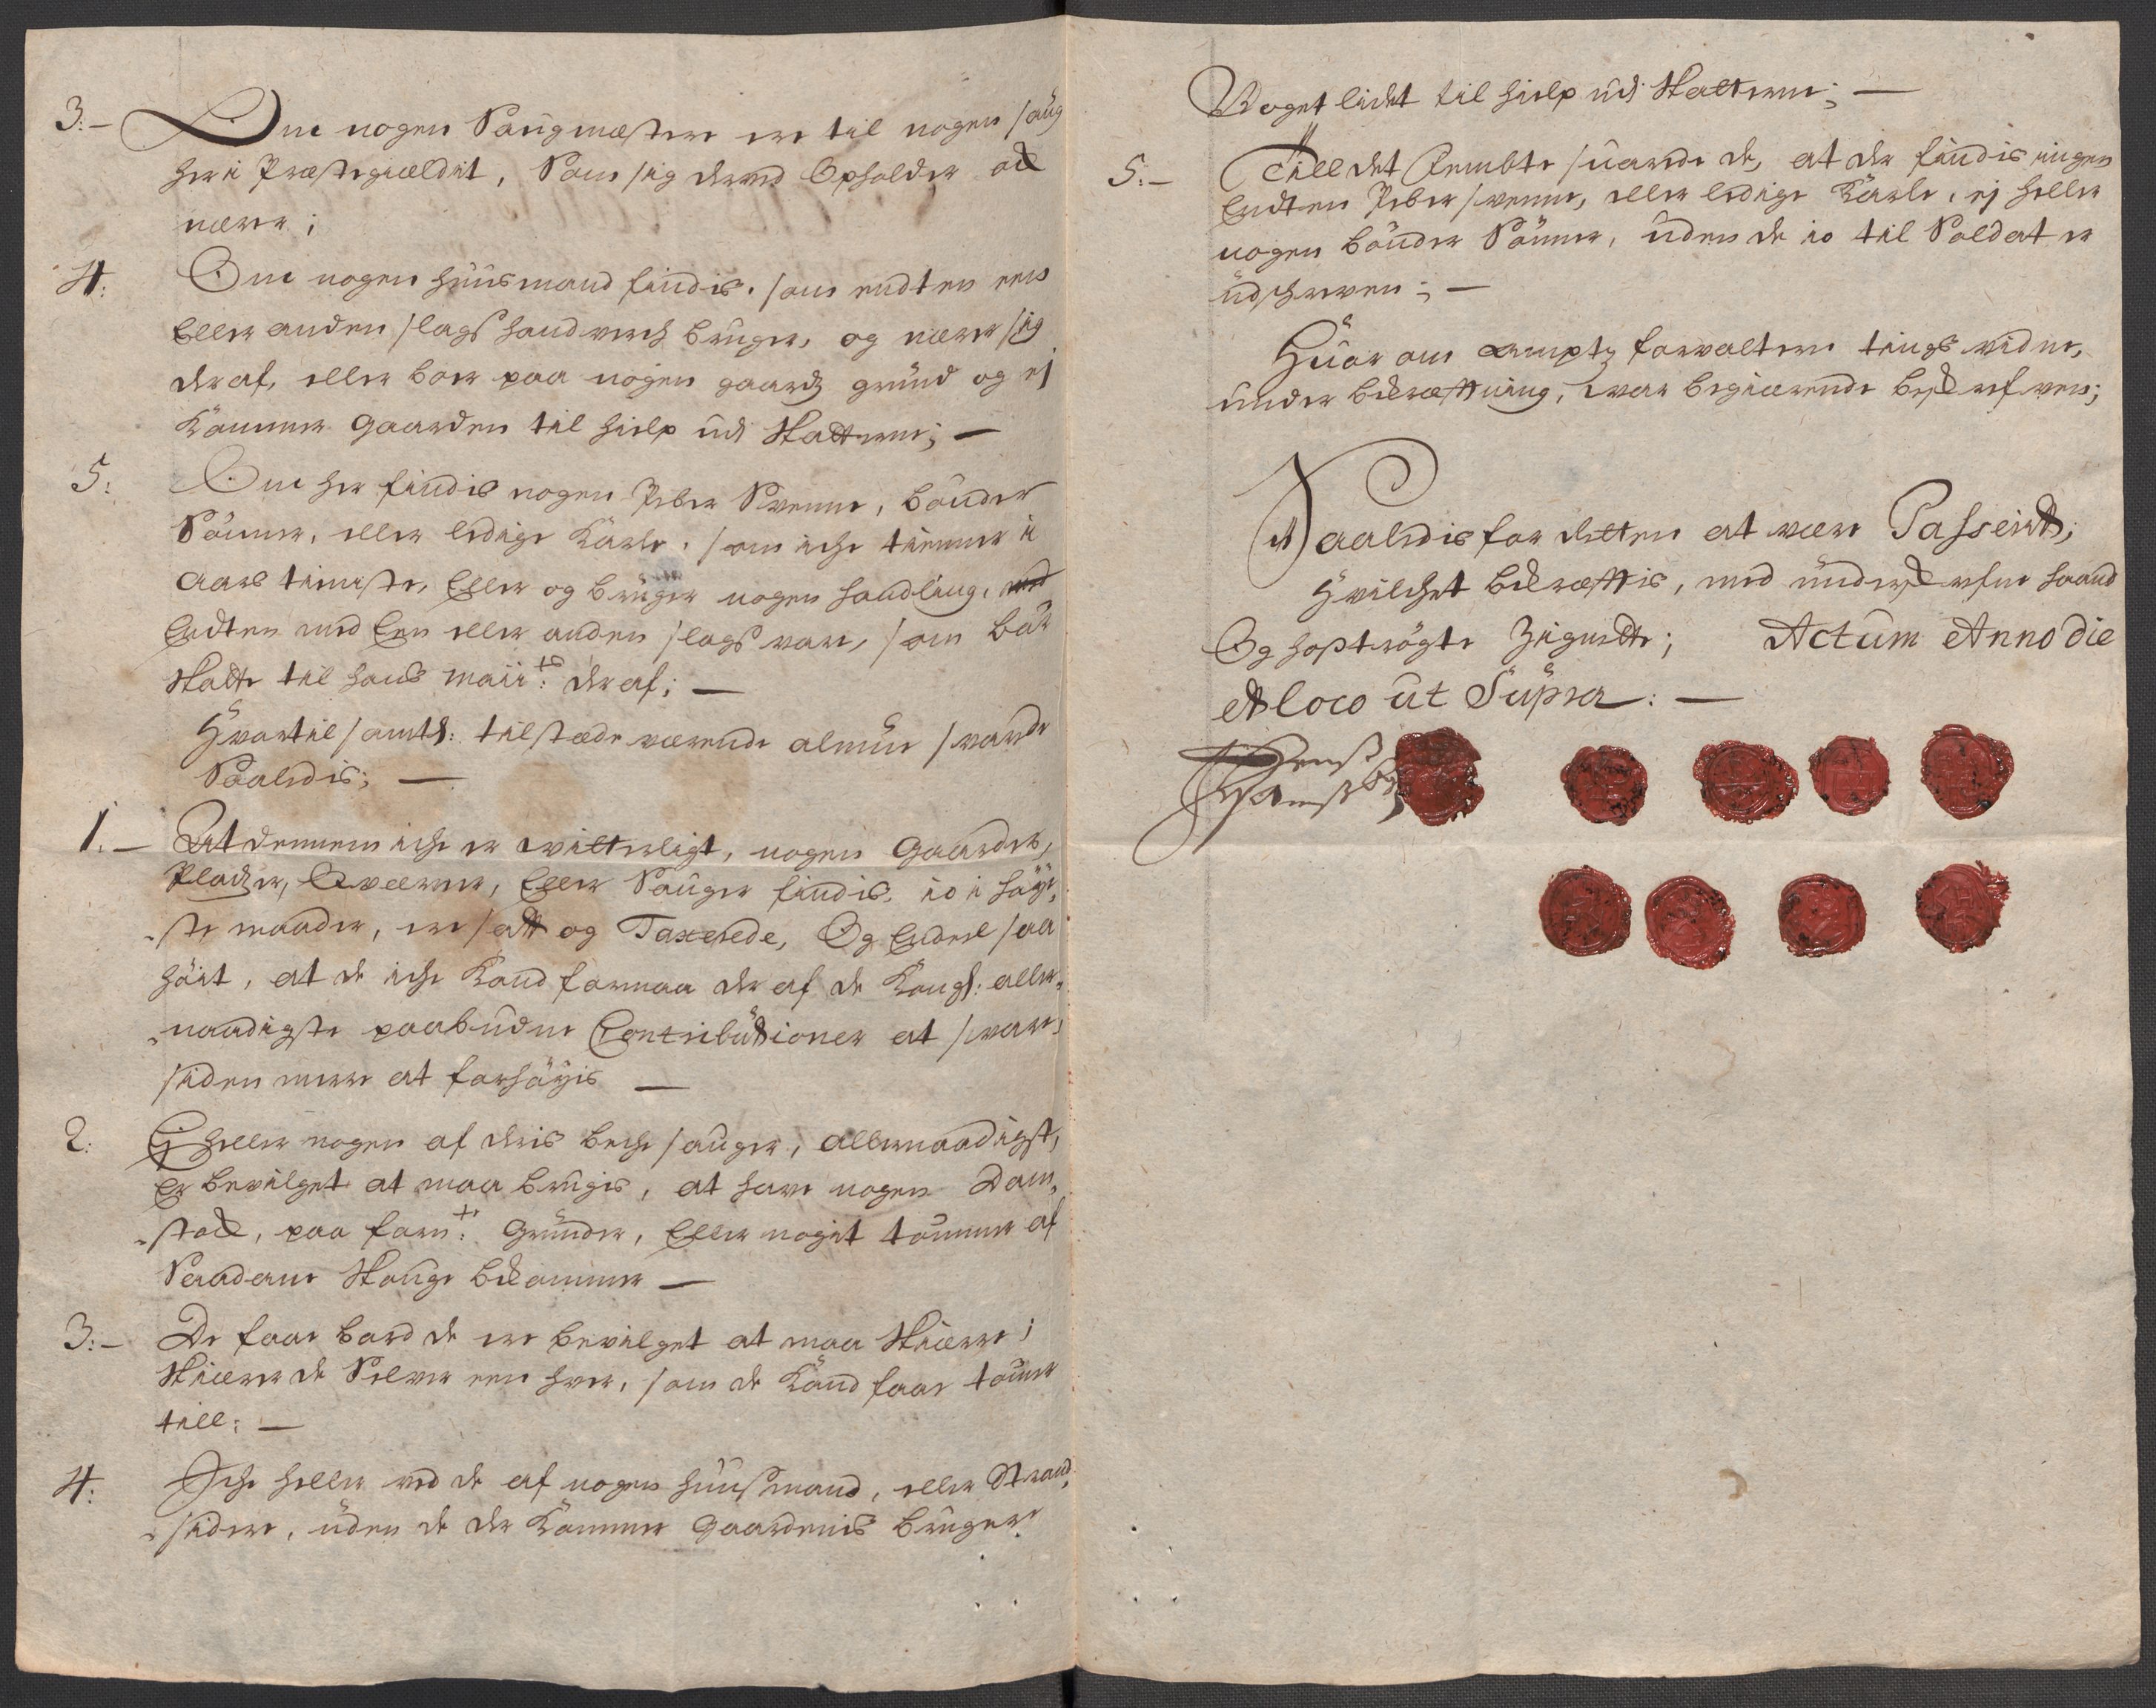 3:- Om nogen Saugmæstere ere til nogen saug
her i Præstegieldet, Som sig derved Opholder och
nærer;
4: Om nogen huusmand findis. som endten een
Eller anden slags handverch bruger, og nærer sig
deraf, eller boer paa nogen gaardz grund og ej
Kommer Gaarden til hielp udj Skatterne; —
5: Om her findis nogen Peber Svenne, bönder
Sönner, eller ledige Karle, som iche tienner i
aars tieniste, Eller og bruger nogen handling,
Endten med Een eller anden slags vare, som bör
Skatte til hans Maii:ts deraf; —
Hvortil samtl: tilstæde værende almue svarede
Saaledis; —
1.- At dennem iche er vitterligt, nogen Gaarder,
Pladzer, Qværner, Eller Sauger findis, io i höye-
-ste maader, ere satt og Taxerede, Og Endeel saa
höit, at de iche Kand formaa der af de Kongl: aller-
-naadigste paabudne Contributioner at svare,
siden mere at forhöyis —
2: Ej heller nogen af deris beche sauger, allernaadigst,
Er bevilget at maa brugis, at have nogen Dam-
-stoch, paa Grunder, Eller noget tömmer af
Saadane Skouge bekommer —
3:- De faae bord de ere bevilget at maa Skiære;
Skierer de Selver een hver, som de Kand faae tömer
till: —
4: Iche heller ved de af nogen huusmand, eller Strand-
-sidere, uden de der Kommer Gaardenis bruger
Noget lidet til hielp udj Skatterne; —
5:- Till det Fembte svarede de, at der findis ingen
Endten Peber svenne, eller ledige Karle, ej heller
nogen bönder Sönner, uden de io til Soldat er
udschreven; —
Huor om amptz forvaltere tings vidne,
under bekræfftning, var begierende beschrefven;
Saaledis for Retten at være Passerit;
Hvilchet bekræfftis, med underschrefne haand
Og hoströgte Zignetter; Actum Anno die
et loco ut Supra: —